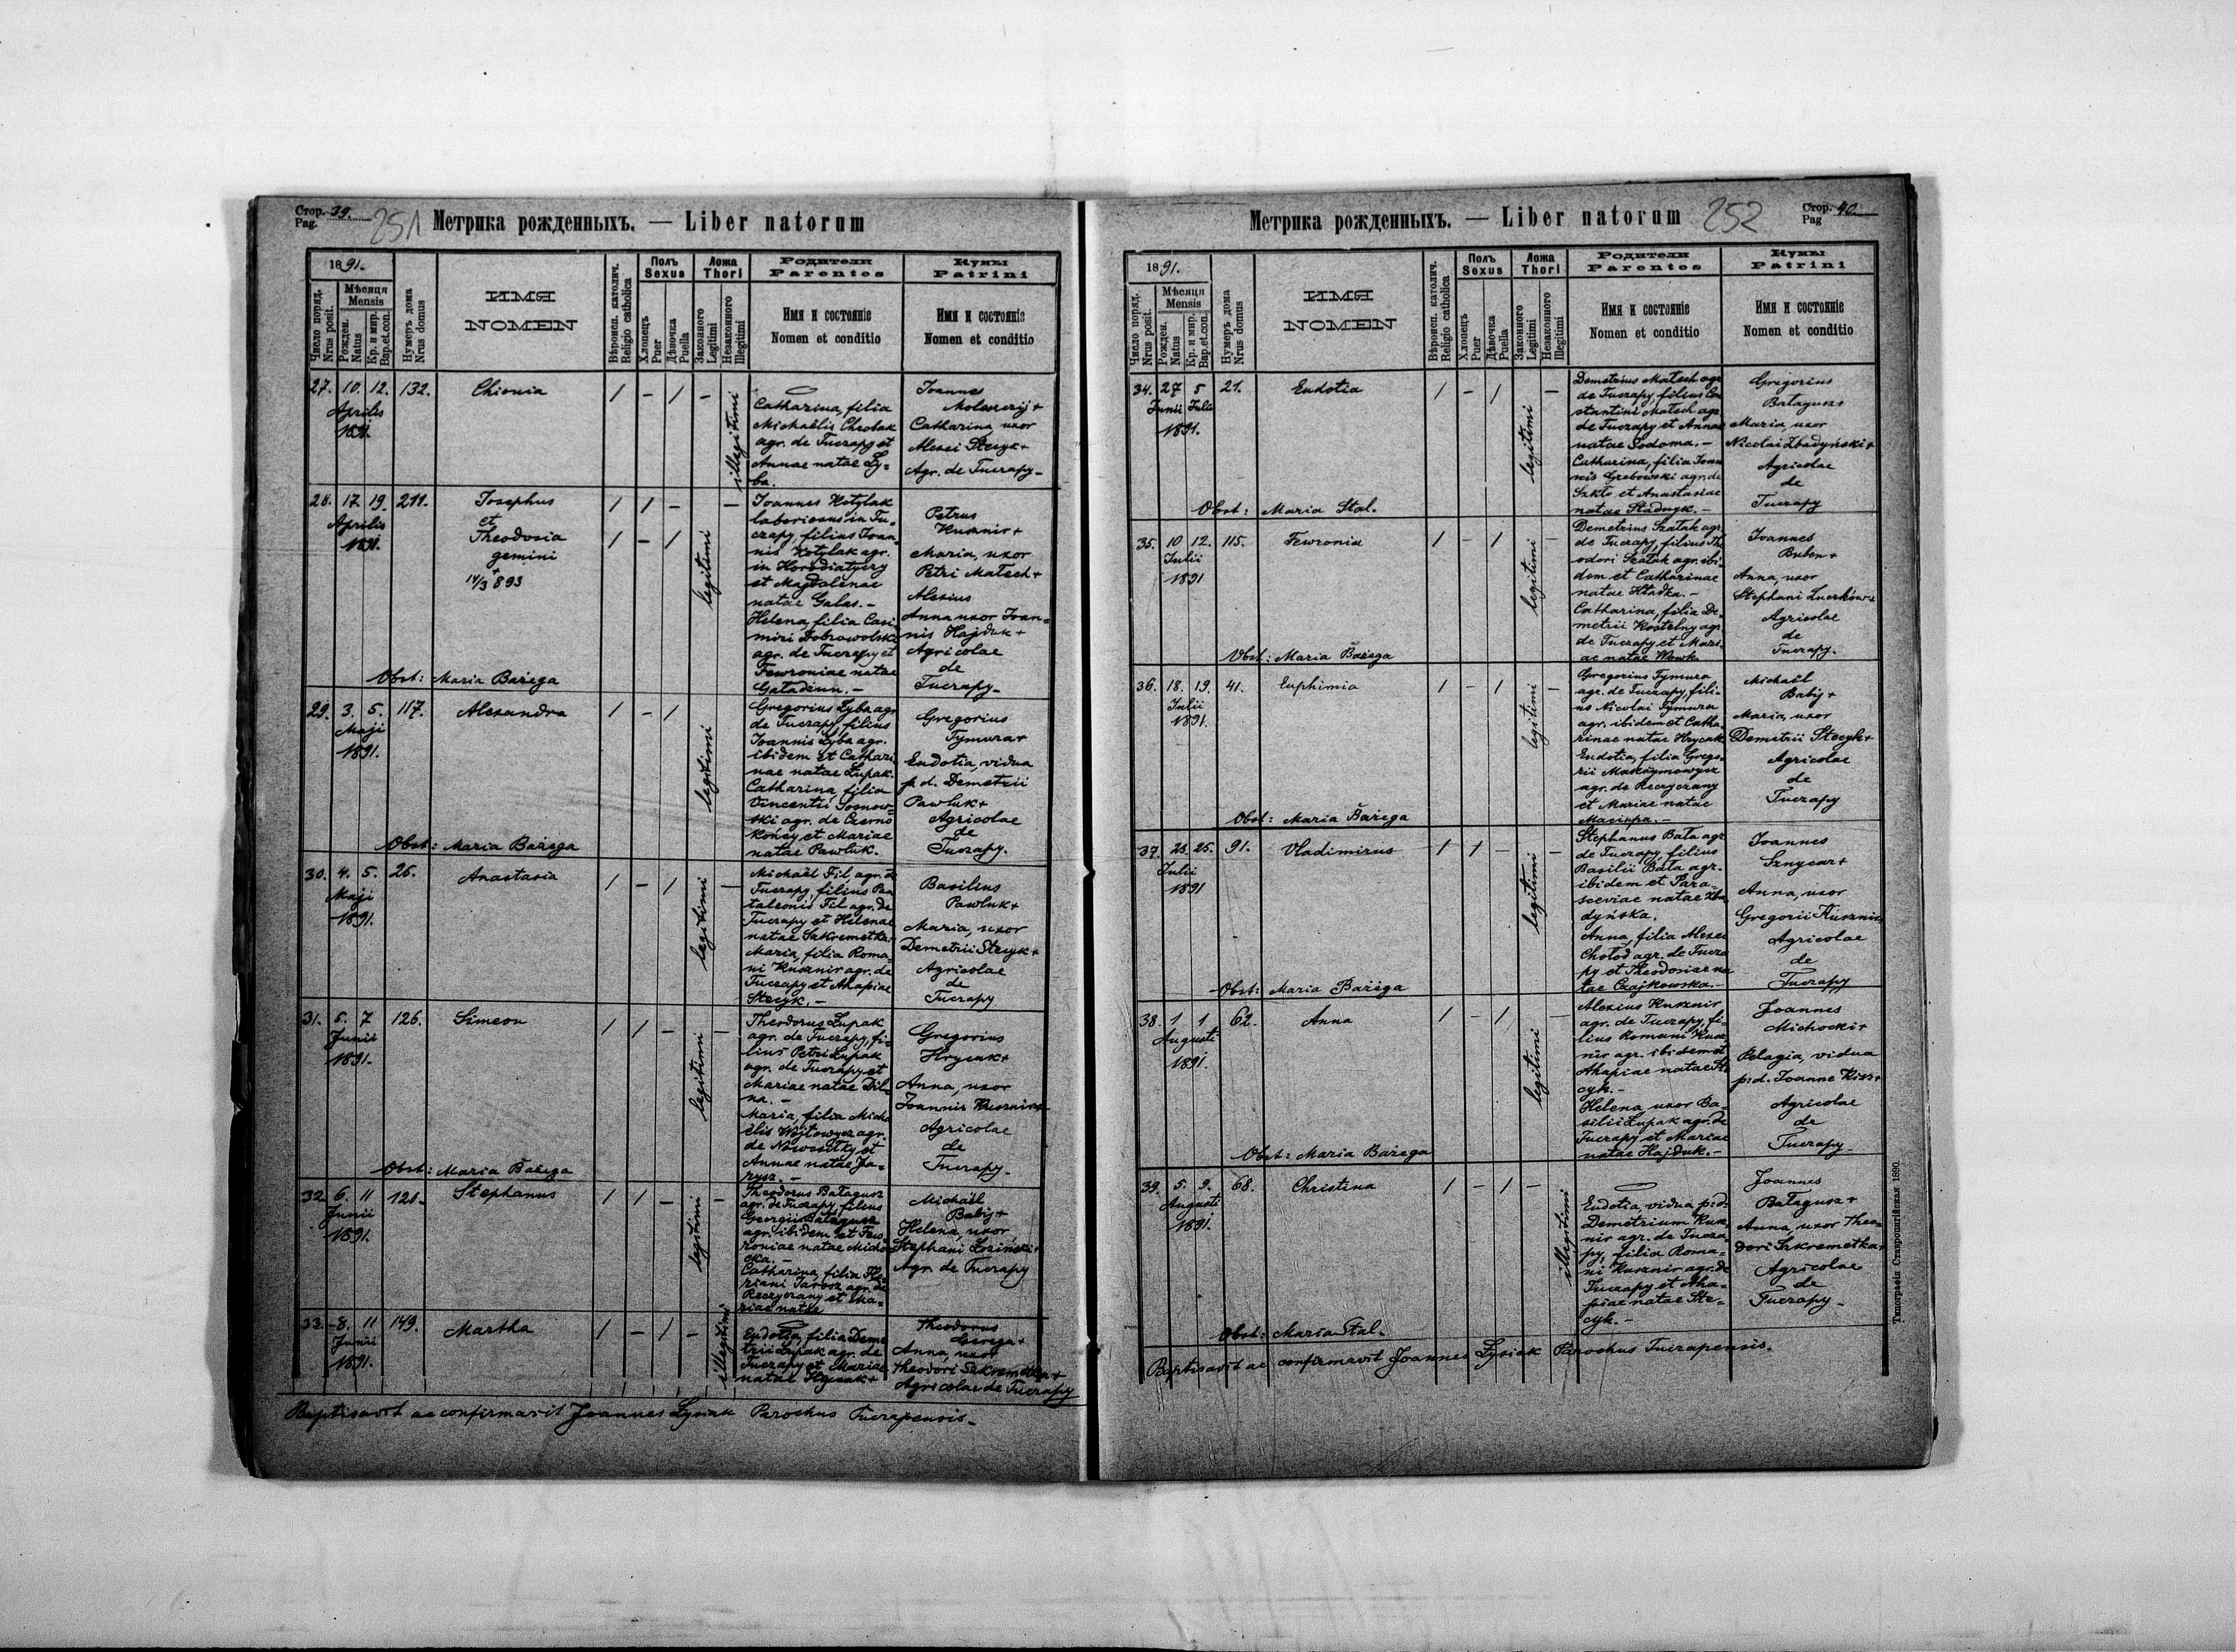 Стор. 39.
Pag.
251
Метрика рожденныхъ. — Liber natorum
1891.
Число поряд.
Nrus posit.
Мѣсяця
Mensis
Рожден.
Natus
Кр. и мир.
Bap.et.con.
Нумеръ дома
Nrus domus
ИМЯ
NOMEN
Вѣроисп. католич.
Religio catholica
Полъ
Sexus
Хлопецъ
Puer
Дѣвочка
Puella
Ложа
Thori
Законного
Legitimi
Незаконного
Illegitimi
Родители
Parentes
Имя и состоянiе
Nomen et conditio
Кумы
Patrini
Имя и состоянiе
Nomen et conditio
27. 10. 12. 132. Chionia / - / -
Aprilis
1891.
illegitimi
Catharina, filia
Michaëlis Chrobak
agr. de Tuczapy et
Annae natae Ły-
ba.
Joannes
Catharina, uxor
Alexei Stecyk+
Agr. de Tuczapy-
28. 17. 19. 211. Josephus / / - -
Aprilis
1891.
et
Theodosia / - /
gemini
+
14/3 893
legitimi
Joannes Kotylak
laboricosus in Tu-
czapy, filius Joan-
nis Kotylak agr.
in Horodiatycry
et Magdalenae
natae Galas.-
Helena, filia Casi
miri Dobrowolski
agr. de Tuczapy et
Fewroniae natae
Gatadiun.-
Petrus
Kusznir+
Maria, uxor
Petri Matech+
Alexius
Anna uxor Joan-
nis Hajduk+
Agricolae
de
Tuczapy-
Obst: Maria Bařega
29. 3. 5. 117. Alexandra / - /
Maji
1891.
legitimi
Gregorius Łyba agr
de Tuczapy, filius
Joannis Łyba agr.
ibidem et Cathari
nae natae Łupak.
Catharina, filia
Vincentii Sosnow-
ski agr. de Czerno
końcy et Mariae
natae Pawluk.
Gregorius
Tymura+
Eudotia, vidua
p. d. Demetrii
Pawluk+
Agricolae
de
Tuczapy.
Obst: Maria Bařega
30. 4. 5. 26. Anastasia / - / -
Maji
1891.
legitimi
Michaël Fil agr. de
Tuczapy, filius Pan
taleonis Fil agr. de
Tuczapy et Helenae
natae Szkremetka.
Maria, filia Roma-
ni Kusznir agr. de
Tuczapy et Ahapiae
Stecyk.-
Basilius
Pawluk+
Maria, uxor
Demetrii Stecyk+
Agricolae
de
Tuczapy
31. 5. 7 126. Simeon / / - -
Junii
1891.
legitimi
Theodorus Łupak
agr. de Tuczapy, fi-
lius Petri Łupak
agr. de Tuczapy et
Mariae natae Dil-
na.-
Maria, filia Micha
ëlis Wojtowycz agr.
de Nowosiłky et
Annae natae Ja-
rysz.-
Gregorius
Hrycak+
Anna, uxor
Joannis Kusznir+
Agricolae
de
Tuczapy-
Obst: Maria Bařega
32. 6. 11 121. Stephanus / / - -
Junii
1891.
legitimi
Theodorus Batagusz
agr. de Tuczapy, filius
Georgii Batagusz
agr. ibidem et Few
roniae natae Micho
cka.-
Catharina, filia Flo
riani Jarosz agr. de
Reczyczany et Ma-
riae natae
Michaël
Babij+
Helena, uxor
Stephani Łoziński+
Agr. de Tuczapy
33. 8. 11 149. Martha / - / -
Junii
1891.
illegitimi
Eudotia, filia Deme
trii Łupak agr. de
Tuczapy et Mariae
natae Hrycak+
Theodorus
Gerega+
Anna, uxor
Theodori Szkremetka+
Agricolae de Tuczapy
Baptisavit ac confirmavit Joannes Łysiak Parochus Tuczapensis-
Метрика рожденныхъ. — Liber natorum
252
Стор. 40.
Pag
1891.
Число поряд.
Nrus posit.
Мѣсяця
Mensis
Рожден.
Natus
Кр. и мир.
Bap.et.con.
Нумеръ дома
Nrus domus
ИМЯ
NOMEN
Вѣроисп. католич.
Religio catholica
Полъ
Sexus
Хлопецъ
Puer
Дѣвочка
Puella
Ложа
Thori
Законного
Legitimi
Незаконного
Illegitimi
Родители
Parentes
Имя и состоянiе
Nomen et conditio
Кумы
Patrini
Имя и состоянiе
Nomen et conditio
34. 27 5 21. Eudotia / - / -
Junii Julii
1891.
legitimi
Demetrius Matech agr
de Tuczapy, filius Con
stantini Matech agr
de Tuczapy et Annae
natae Sodoma.-
Catharina, filia Joan
nis Grebowski agr. de
Szkło et Anastasiae
natae Stadnyk.-
Gregorius
Batagusz+
Maria, uxor
Nicolai Zbadyński+
Agricolae
de
Tuczapy
Obst: Maria Stal.
35. 10 12. 115. Fewronia / - / -
Julii
1891
legitimi
Demetrius Szatak agr.
de Tuczapy, filius The
odori Szatak agr. ibi-
dem et Catharinae
natae Hładka.-
Catharina, filia De-
metrii Kostelny agr
de Tuczapy et Mari-
ae natae Wowk.
Joannes
Buben+
Anna, uxor
Stephani
Agricolae
de
Tuczapy-
Obst: Maria Bařega
36. 18. 19. 41. Euphimia / - / -
Julii
1891.
legitimi
Gregorius Tymura
agr. de Tuczapy, fili-
us Nicolai Tymura
agr. ibidem et Catha-
rinae natae Hrycak
Eudotia, filia Grego-
rii Maksymowycz
agr. de Reczyczany
et Mariae natae
Maciupa.-
Michaël
Babij+
Maria, uxor
Demetrii Stecyk+
Agricolae
de
Tuczapy
Obst: Maria Bařega
37. 25. 25. 91. Vladimirus / / - -
Julii
1891
legitimi
Stephanus Bata agr
de Tuczapy, filius
Basilii Bata agr.
ibidem et Para-
sceviae natae Zba
dyńska.
Anna, filia Alexei
Chołod agr. de Tucza
py et Theodosiae na
tae Czajkowska.-
Joannes
Sznycar+
Anna, uxor
Gregorii Kusznir+
Agricolae
de
Tuczapy
Obst: Maria Bařega
38. 1 1 62. Anna / - / -
Augusti
1891.
legitimi
Alexius Kusznir
agr. de Tuczapy, fi-
lius Romani Kusz
nir agr. ibidem et
Ahapiae natae Ste
cyk.-
Helena uxor Ba-
silii Łupak agr. de
Tuczapy et Mariae
natae Hajduk.-
Joannes
Michocki+
Pelagia, vidua
p. d. Joanne
Agricolae
de
Tuczapy-
Obst: Maria Bařega
39. 5. 9. 68. Christina / - / -
Augusti
1891.
illegitimi
Eudotia, vidua p. d.
Demetrium Kusz-
nir agr. de Tucza-
py, filia Roma-
ni Kusznir agr. de
Tuczapy et Aha-
piae natae Ste-
cyk.-
Joannes
Batagusz+
Anna, uxor Theo-
dori Szkremetka+
Agricolae
de
Tuczapy-
Obst: Maria Stal.
Baptisavit ac confirmavit Joannes Łysiak Parochus Tuczapensis.
Типографія Ставропигійская 1890.